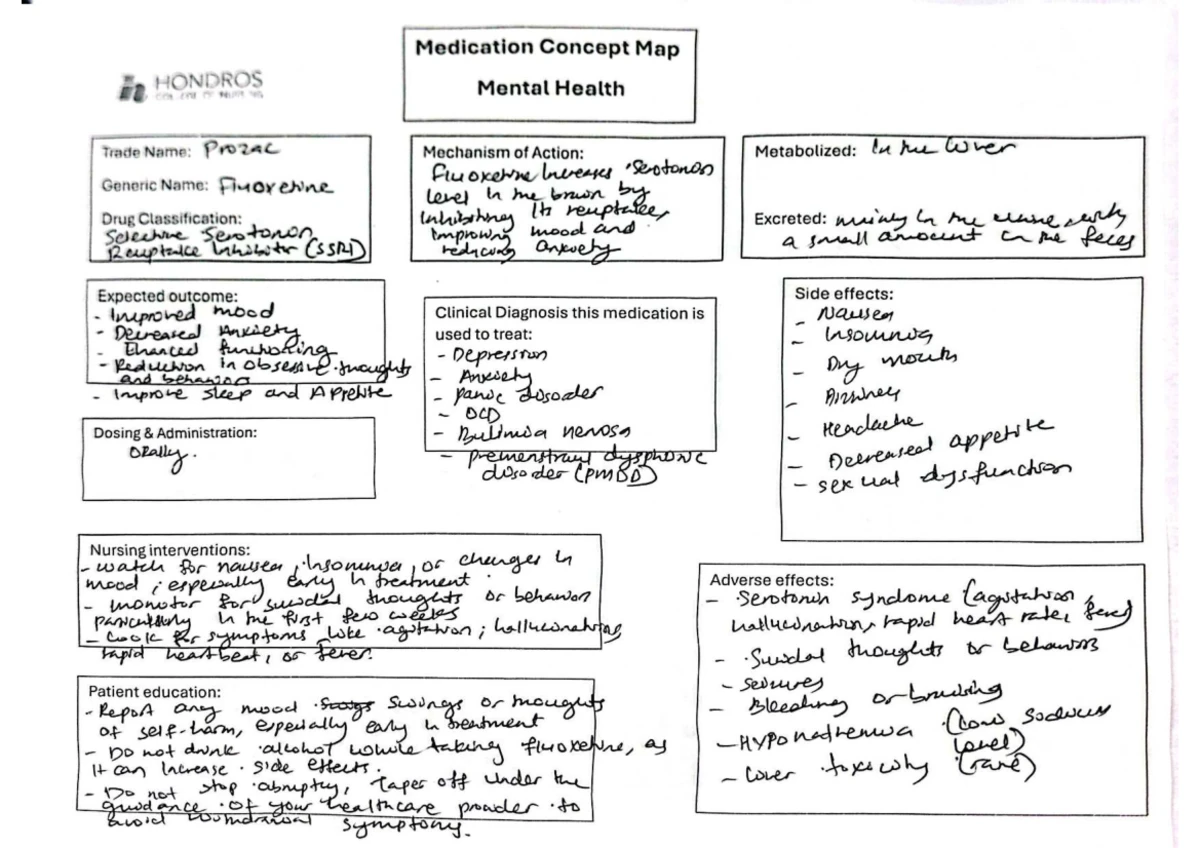 Medication Concept Map
Mental Health
HONDROS
COLLEGE OF NURSING
Trade Name: Prozac
Generic Name: Fluoxetine
Drug Classification:
Selective Serotonin
Reuptake Inhibitor (SSRI)
Mechanism of Action:
Fluoxetine Increases Serotonin
level in the brain by
Inhibiting Its reuptake,
Improving mood and
reducing anxiety
Metabolized: In the Liver
Excreted: mainly in the urine, with
a small amount in the feces
Expected outcome:
- Improved mood
- Decreased Anxiety
- Enhanced functioning
- Reduction in obsessive thoughts
and behaviors
- Improve sleep and Appetite
Clinical Diagnosis this medication is
used to treat:
- Depression
- Anxiety
- panic disorder
- OCD
- Bulimia nervosa
- premenstrual dysphoric
disorder (PMDD)
Side effects:
- Nausea
- Insomnia
- Dry mouth
- Dizziness
- Headache
- Decreased appetite
- sexual dysfunction
Dosing & Administration:
Orally.
Nursing interventions:
- watch for nausea, insomnia, or changes in
mood, especially early in treatment
- monitor for suicidal thoughts or behavior
particularly in the first few weeks
- Look for symptoms like agitation, hallucinations
rapid heartbeat, or fever.
Adverse effects:
- Serotonin syndrome (agitation,
hallucination, rapid heart rate, fever)
- Suicidal thoughts or behaviors
- seizures
- Bleeding or bruising
- Hyponatremia (low sodium
level)
- Liver toxicity (rare)
Patient education:
- Report any mood swings or thoughts
of self-harm, especially early in treatment
- Do not drink alcohol while taking fluoxetine, as
It can increase side effects.
- Do not stop abruptly, taper off under the
guidance of your healthcare provider to
avoid withdrawal symptoms.